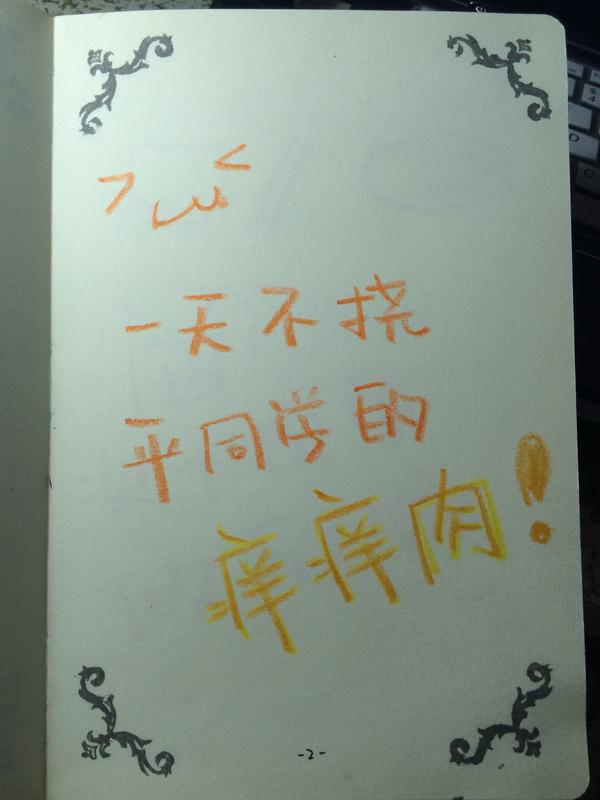 >ω<
一天不挠
平同学的
痒痒肉!
-2-